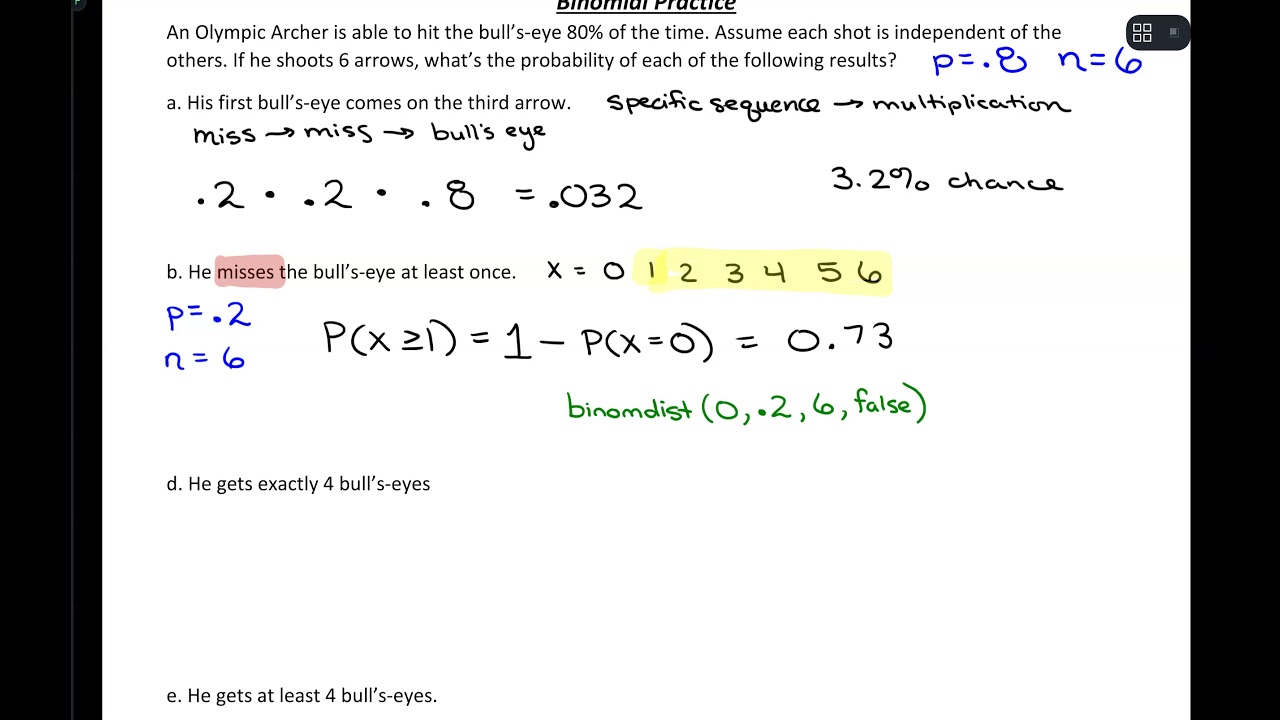 Binomial Practice
An Olympic Archer is able to hit the bull's-eye 80% of the time. Assume each shot is independent of the
others. If he shoots 6 arrows, what's the probability of each of the following results? p=.8 n=6
a. His first bull's-eye comes on the third arrow. specific sequence → multiplication
miss → miss → bull's eye
.2 · .2 · .8 = .032 3.2% chance
b. He misses the bull's-eye at least once. x = 0 1 2 3 4 5 6
p=.2
n=6
P(x≥1) = 1 - P(x=0) = 0.73
binomdist(0,.2,6,false)
d. He gets exactly 4 bull's-eyes
e. He gets at least 4 bull's-eyes.